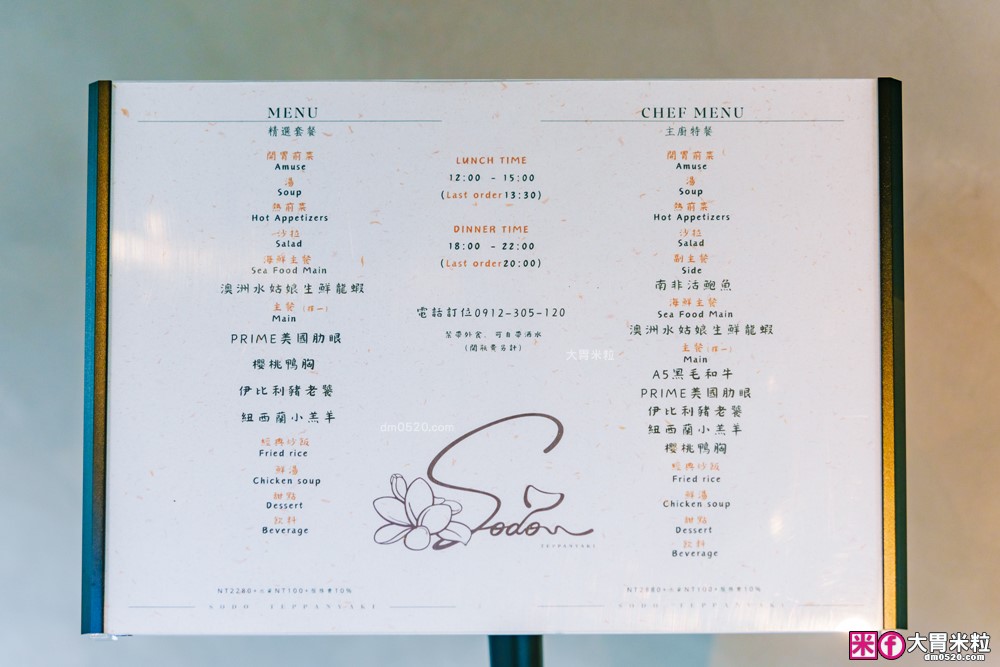 MENU
精選套餐
開胃前菜
Amuse
湯
Soup
熱前菜
Hot Appetizers
沙拉
Salad
海鮮主餐
Sea Food Main
澳洲水姑娘生鮮龍蝦
主餐(擇一)
Main
PRIME美國肋眼
櫻桃鴨胸
伊比利豬老饕
紐西蘭小羔羊
經典炒飯
Fried rice
鮮湯
Chicken soup
甜點
Dessert
飲料
Beverage
NT2280+水資NT100+服務費10%
SODO TEPPANYAKI
LUNCH TIME
12:00 - 15:00
(Last order13:30)
DINNER TIME
18:00 - 22:00
(Last order20:00)
電話訂位0912-305-120
禁帶外食、可自帶酒水
(開瓶費另計)
大胃米粒
dm0520.com
Sodon
TEPPANYAKI
CHEF MENU
主廚特餐
開胃前菜
Amuse
湯
Soup
熱前菜
Hot Appetizers
沙拉
Salad
副主餐
Side
南非活鮑魚
海鮮主餐
Sea Food Main
澳洲水姑娘生鮮龍蝦
主餐(擇一)
Main
A5黑毛和牛
PRIME美國肋眼
伊比利豬老饕
紐西蘭小羔羊
櫻桃鴨胸
經典炒飯
Fried rice
鮮湯
Chicken soup
甜點
Dessert
飲料
Beverage
SODO TEPPANYAKI
米 f 大胃米粒
dm0520.com